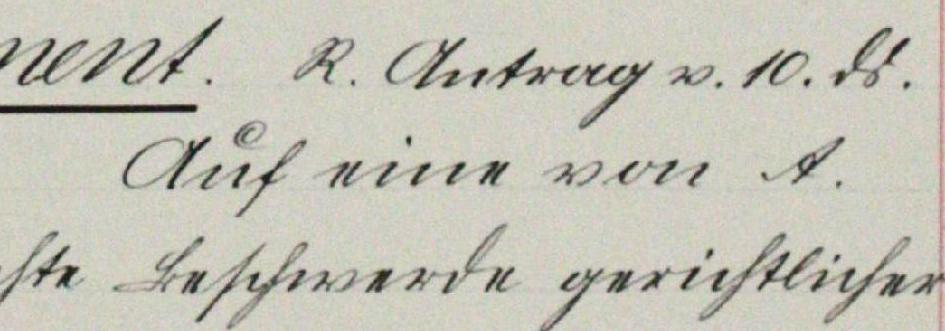 nent. R. Antrag v. 10. ds.
Auf eine von A.
chte Beschwerde gerichtlicher